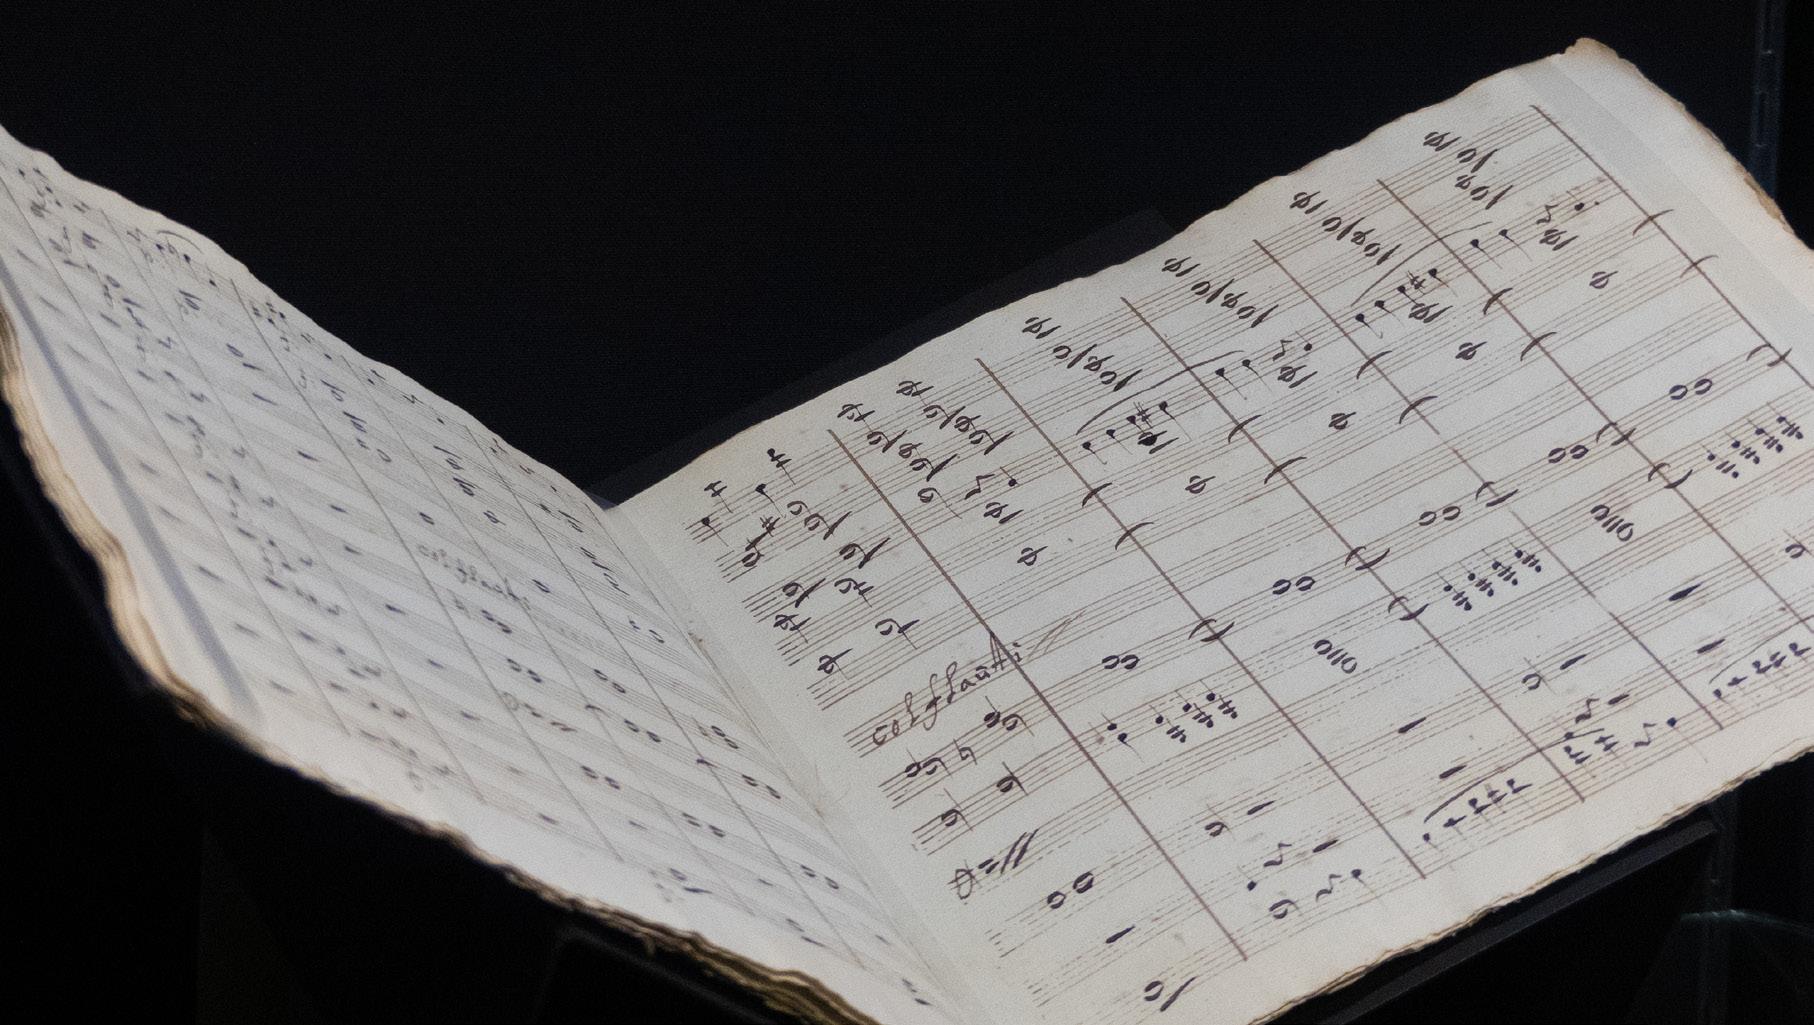 col flauti
col flauti